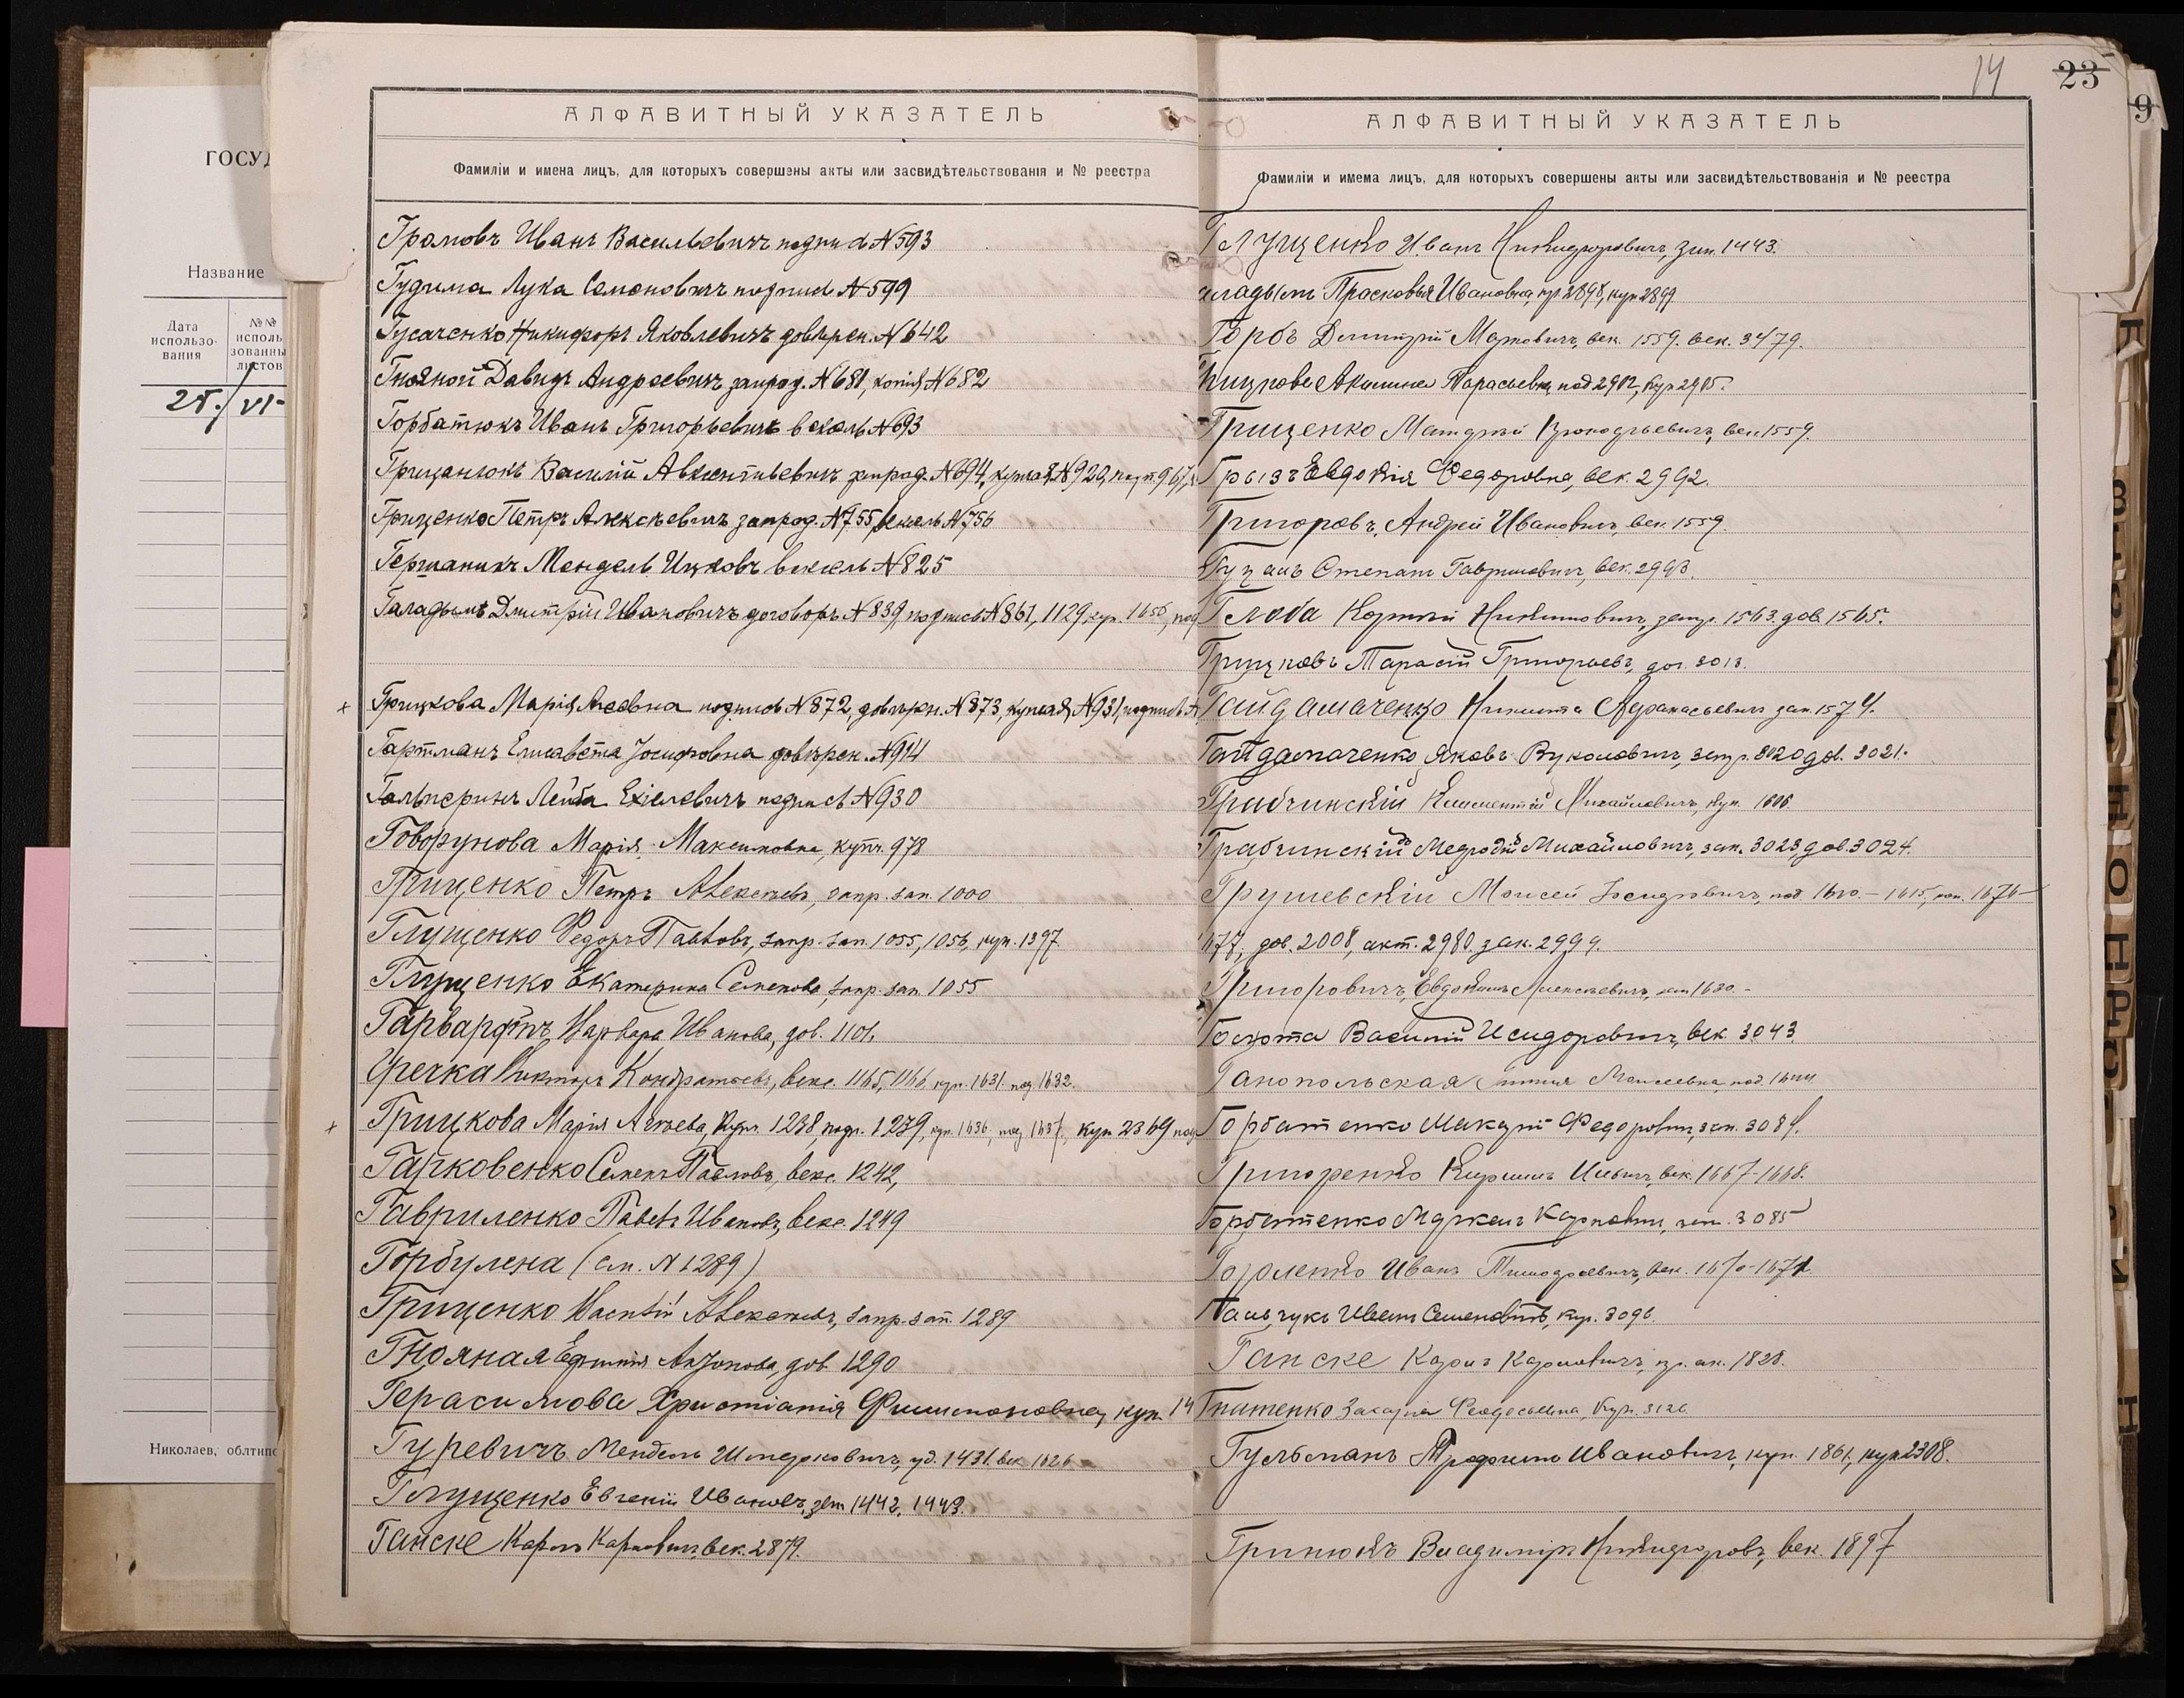 ГОСУД
Название
Дата
использо-
вания
№№
исполь
зованны
листов
25./VI-
Николаев, облтипо
АЛФАВИТНЫЙ УКАЗАТЕЛЬ
Фамиліи и имена лицъ, для которыхъ совершены акты или засвидѣтельствованія и № реестра
Громовъ Иванъ Васильевичъ подпись №593
Гудима Лука Семоновичъ подпись №599
Гусаченко Никифоръ Яковлевичъ довѣрен. №642
Гнояной Давидъ Андреевичъ запрод. №681, копія №682
Горбатюкъ Иванъ Григорьевичъ вексель №693
Грицанюкъ Василій Авксентьевичъ запрод. №694, купчая №920, подп. 967,
Гриценко Петръ Алексѣевичъ запрод. №755 вексель №756
Гершаникъ Мендель Ицковъ вексель №825
Галадымъ Дмитрій Ивановичъ договоръ №839, подпись №861, 1129, куп. 1656, под
Грицкова Марія Агѣевна подпись №872, довѣрен. №873, купчая №931, подпись №
Гартманъ Елисавета Іосифовна довѣрен. №914
Гальперинъ Лейба Ехіелевичъ подпись №930
Говорунова Марія Максимовна, купч. 978
Гриценко Петръ Алексѣевъ, запр. зап. 1000
Глущенко Федоръ Павловъ, запр. зап. 1055, 1056, куп. 1397
Глущенко Екатерина Семенова, запр. зап. 1055
Варвара Иванова, дов. 1101.
Гречка Викторъ Кондратьевъ, векс. 1165, 1166, куп. 1631. под. 1632.
Грицкова Марія Агѣева, Купч. 1238, подп. 1239, куп. 1636, под 1637, куп 2369 под
Гарковенко Семенъ Павловъ, векс. 1242,
Гавриленко Павелъ Ивановъ, векс. 1249
Горбулена (см. №1289)
Гриценко Василій Алексѣевъ, запр. зап. 1289
Гнояная Ефимія Антонова, дов. 1290
Герасимова Христіанія Филимоновна, куп. 14
Гуревичъ Мендель Шмерковичъ, уд. 1431. век 1626
Глущенко Евгеній Ивановъ, зап 1442, 1443.
Ганске Карлъ Карловичъ, век. 2879.
14
23
9
АЛФАВИТНЫЙ УКАЗАТЕЛЬ
Фамиліи и имема лицъ, для которыхъ совершены акты или засвидѣтельствованія и № реестра
Глущенко Иванъ Никифоровичъ, зап. 1443.
аладымъ Прасковья Ивановна, 2898, куп 2899
Гербъ Дмитрій Марковичъ, век. 1559. век. 3479.
Грицкова Акилина Тарасьевна, под 2902, куп 2905.
Гриценко Матфей век. 1559.
Грызъ Евдокія Федоровна, век. 2992.
Григоровъ, Андрей Ивановичъ, век. 1559.
Гуцанъ Степанъ Гавриловичъ, век. 2993.
Глоба Корній Никитовичъ, запр. 1563. дов. 1565.
Грицковъ Тарасій Григорьевъ, дог. 3013.
Гайдамаченко Никита Афанасьевичъ зап. 1574.
Гайдамаченко Яковъ Вуколовичъ, запр. 3020 дов. 3021.
Грабчинскій Климентій Михайловичъ, куп. 1606
Грабчинскій Мефодій Михайловичъ, зап. 3023, дов. 3024.
Грушевскій Моисей 1610. - 1615, 1676 -
1677, дов. 2008, акт. 2980. зак. 2999.
Григоровичъ, Евдокимъ Алексѣевичъ, зап 1630. -
Василій Исидоровичъ, век. 3043.
Ганопольская Моисеевна, под. 1644
Горбатенко Макарій Федоровичъ, зап. 3084.
Григоренко Кириллъ Ильичъ, век. 1667-1668.
Горбатенко Маркелъ Карповичъ, зап. 3085
Горленко Иванъ Тимофеевичъ, век. 1670-1671.
Гальчукъ Иванъ Семеновичъ, куп. 3096.
Ганске Карлъ Карловичъ, 1828.
Гнитенко Феодосьевна, Куп. 3126
Гульманъ Трофимъ Ивановичъ, куп. 1861, куп 2308.
Гринюкъ Владиміръ Никифоровъ, век. 1897